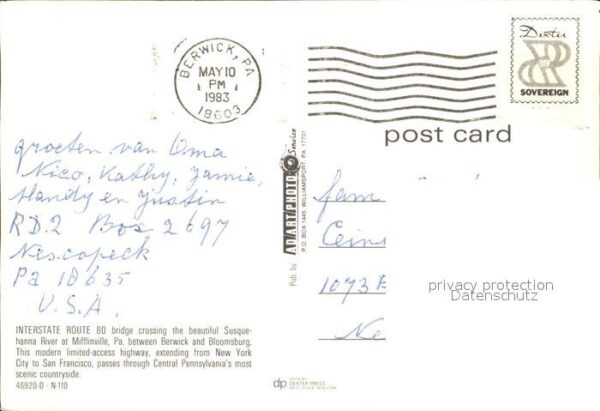 BERWICK, PA
MAY 10
PM
1983
18603
Dexter
SOVEREIGN
post card
groeten van Oma
Nico, Kathy, Jamie,
Mandy en Justin
RD.2 Box 2697
Nescopeck
Pa 18635
U.S.A.
Fam
Cein
1073
Ne
privacy protection
Datenschutz
Pub. by AD/ART/PHOTO Service
P.O. BOX 1445, WILLIAMSPORT, PA. 17701
INTERSTATE ROUTE 80 bridge crossing the beautiful Susque-
hanna River at Mifflinville, Pa. between Berwick and Bloomsburg.
This modern limited-access highway, extending from New York
City to San Francisco, passes through Central Pennsylvania's most
scenic countryside.
46920-D - N-110
dp
DEXTER PRESS
WEST NYACK, NEW YORK